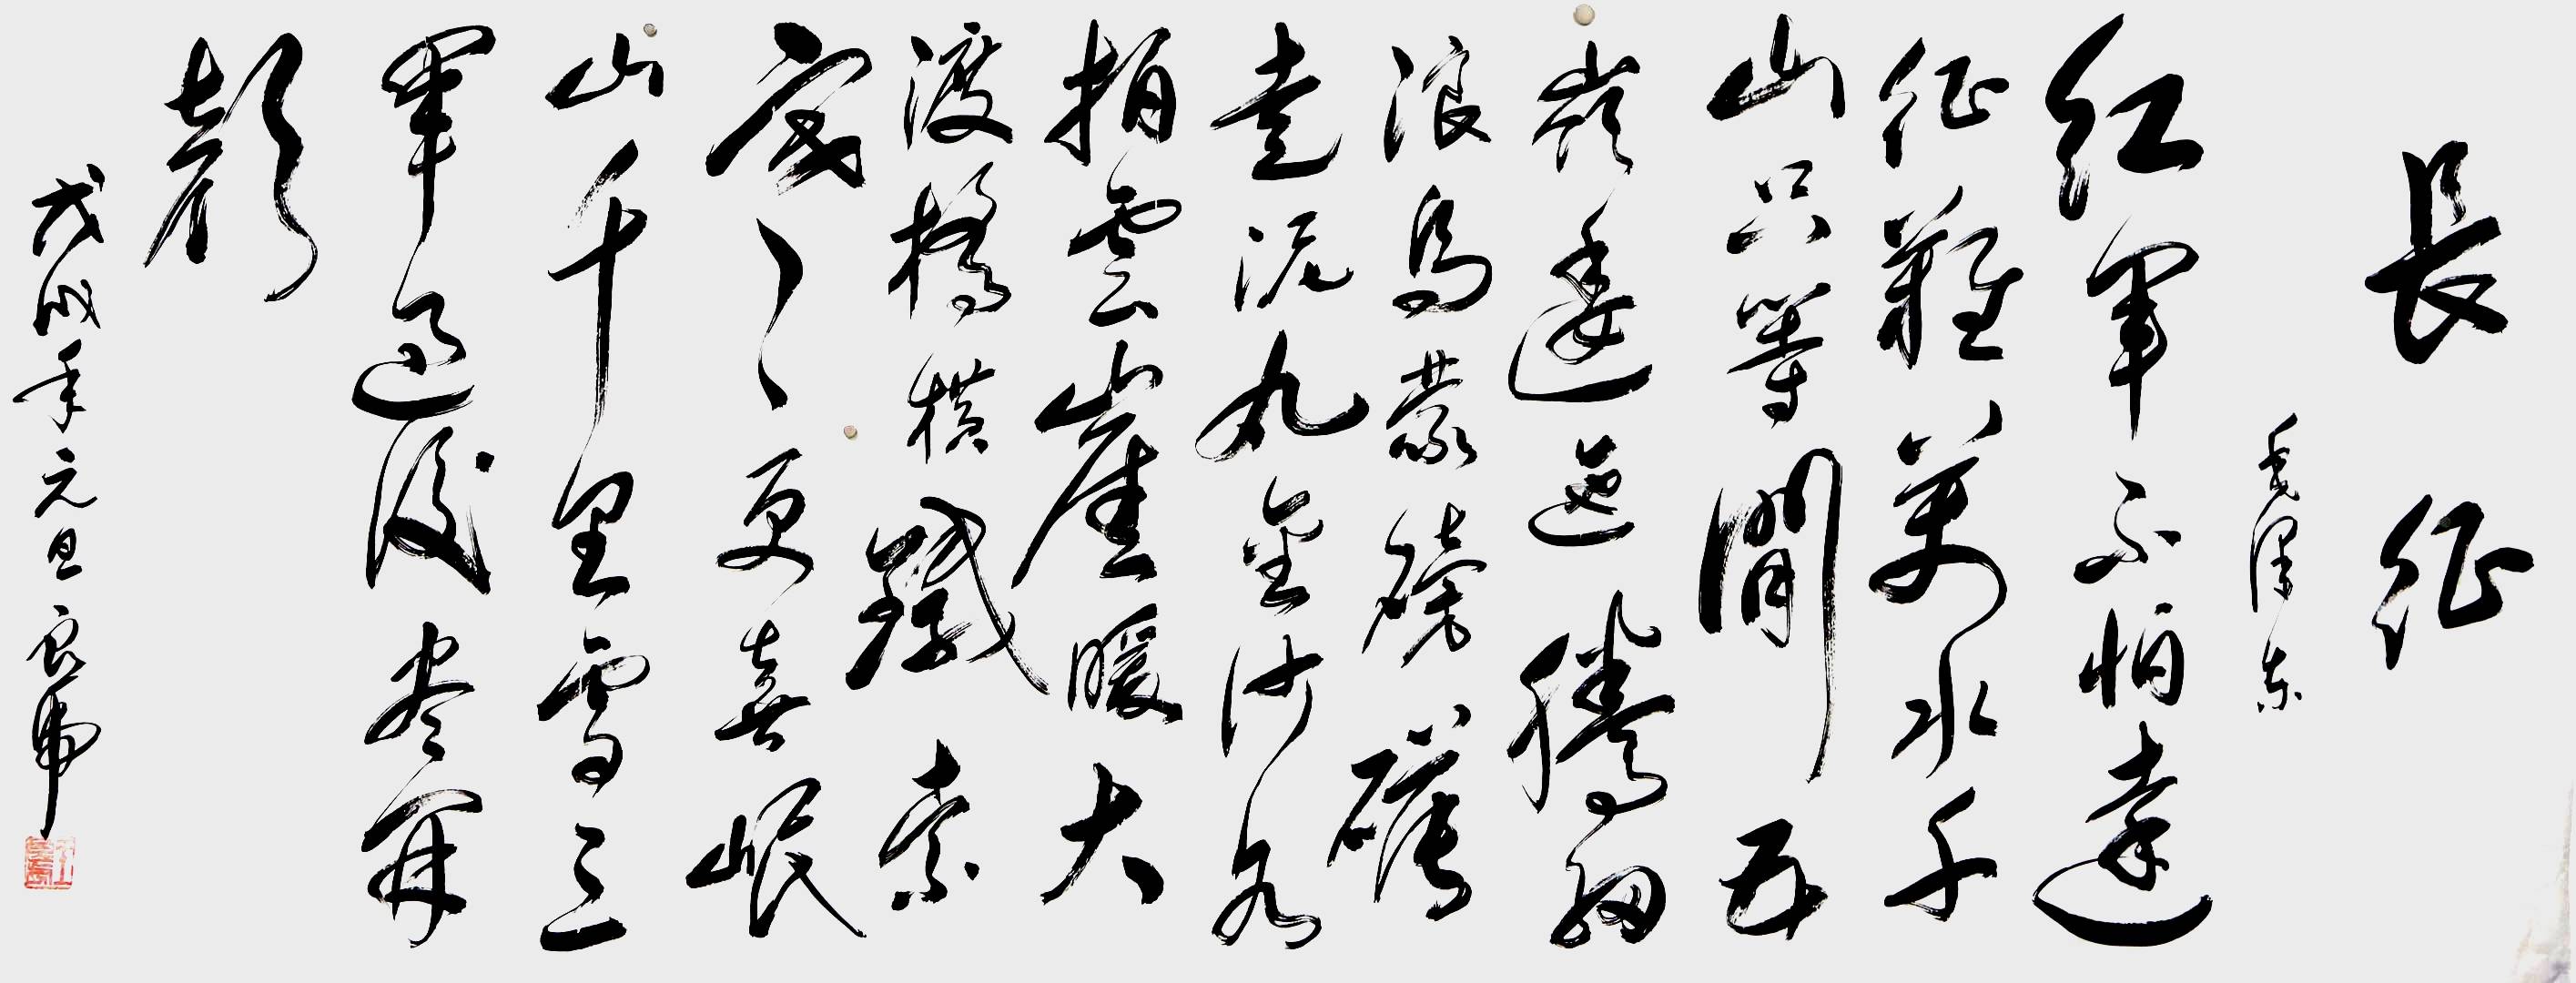 長征
毛泽东
红軍不怕遠
征難萬水千
山只等閒五
嶺逶迤騰細
浪烏蒙磅礴
走泥丸金沙水
拍雲崖暖大
渡橋横鐵索
寒更喜岷
山千里雪三
軍過後尽開
顏
戊戌年元旦